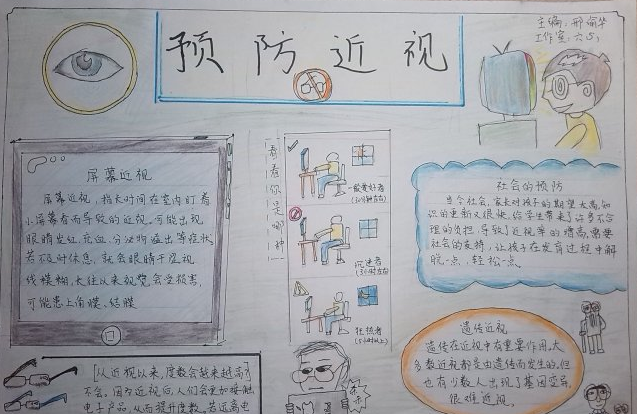 预防近视
主编：邢俞华
工作室：六(5)
屏幕近视
屏幕近视，指长时间在室内盯着
小屏幕看而导致的近视。可能出现
眼睛发红、充血、分泌物溢出等症状
若不及时休息，就会眼睛干涩视
线模糊，长往以来视觉会受损害，
可能患上角膜、结膜
看看你是哪种
一般爱好者
沉迷者
狂热者
社会的预防
当今社会，家长对孩子的期望太高，知
识的更新又很快，给学生带来了许多不合
理的负担，导致了近视率的增高，需要
社会的支持，让孩子在发育过程中解
脱一点，轻松一点。
遗传近视
遗传在近视中有重要作用，大
多数近视都是由遗传而发生的，但
也有少数人出现了基因变异，
很难近视。
从近视以来，度数会越来越高
不会，因为近视后，人们会更加接触
电子产品，从而提升度数，若远离电